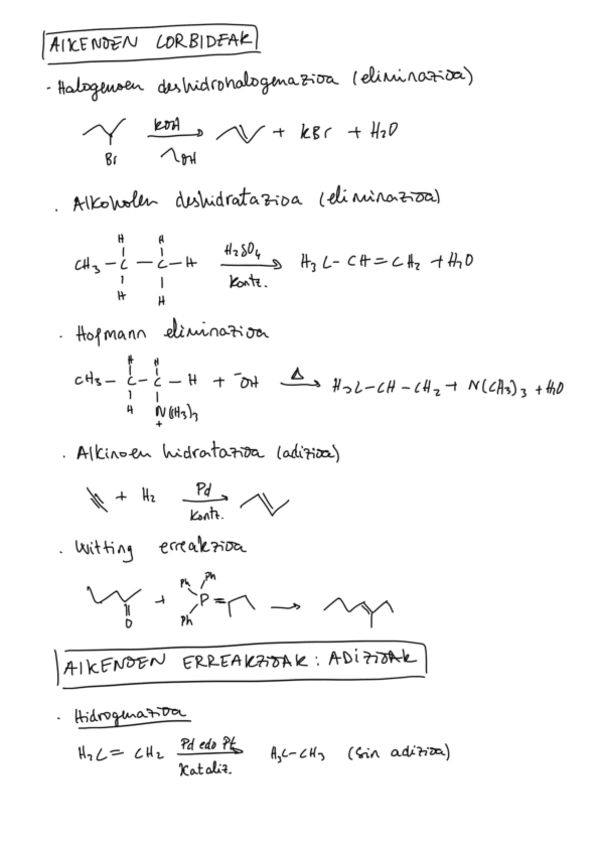 ALKENOEN LORBIDEAK
- Halogenoen deshidrohalogenazioa (eliminazioa)
KOH
Br
OH
+ KBr + H2O
. Alkoholen deshidratazioa (eliminazioa)
H H
CH3 - C - C - H
H H
H2SO4
Kontz.
H3C - CH = CH2 + H2O
. Hofmann eliminazioa
H H
CH3 - C - C - H + -OH
H N(CH3)3
+
Δ
H3C - CH - CH2 + N(CH3)3 + H2O
. Alkinoen hidratazioa (adizioa)
+ H2
Pd
Kontz.
. Witting erreakzioa
O
+
Ph Ph
P=
Ph
ALKENOEN ERREAKZIOAK: ADIZIOAK
. Hidrogenazioa
H2C = CH2
Pd edo Pt
Kataliz.
H3C-CH3 (sin adizioa)